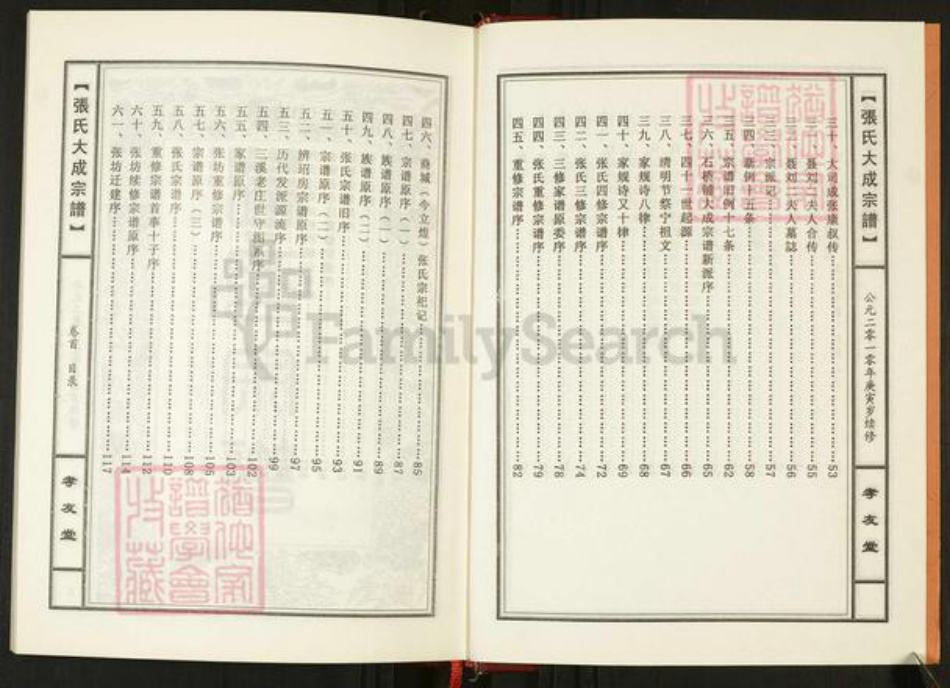 【張氏大成宗譜】
公元二零一零年庚寅岁续修
孝友堂
三十、大司成张康叔传……53
三一、聂刘二夫人合传……55
三二、聂刘二夫人墓誌……56
三三、宗派记……57
三四、新例十五条……58
三五、宗谱旧例十七条……62
三六、石桥铺大成宗谱新派序……65
三七、四十一世起源……66
三八、清明节祭宁祖文……67
三九、家规诗八律……68
四十、家规诗又十律……69
四一、张氏四修宗谱序……72
四二、张氏三修宗谱序……74
四三、三修家谱原委序……78
四四、张氏重修宗谱序……79
四五、重修宗谱序……82
四六、(今立煌)张氏宗祀记……85
四七、宗谱原序(一)……87
四八、族谱原序(一)……89
四九、族谱原序(二)……91
五十、张氏宗谱旧序……93
五一、宗谱原序(二)……95
五二、辨绍房宗谱原序……97
五三、历代发派源流序……99
五四、三溪老庄世守图系序……102
五五、家谱原序……103
五六、张坊重修宗谱序……105
五七、宗谱原序(三)……108
五八、张氏宗谱序……110
五九、重修宗谱首事十子序……112
六十、张坊续修宗谱原序……114
六一、张坊迁建序……117
【張氏大成宗譜】
卷首 目录
孝友堂
FamilySearch